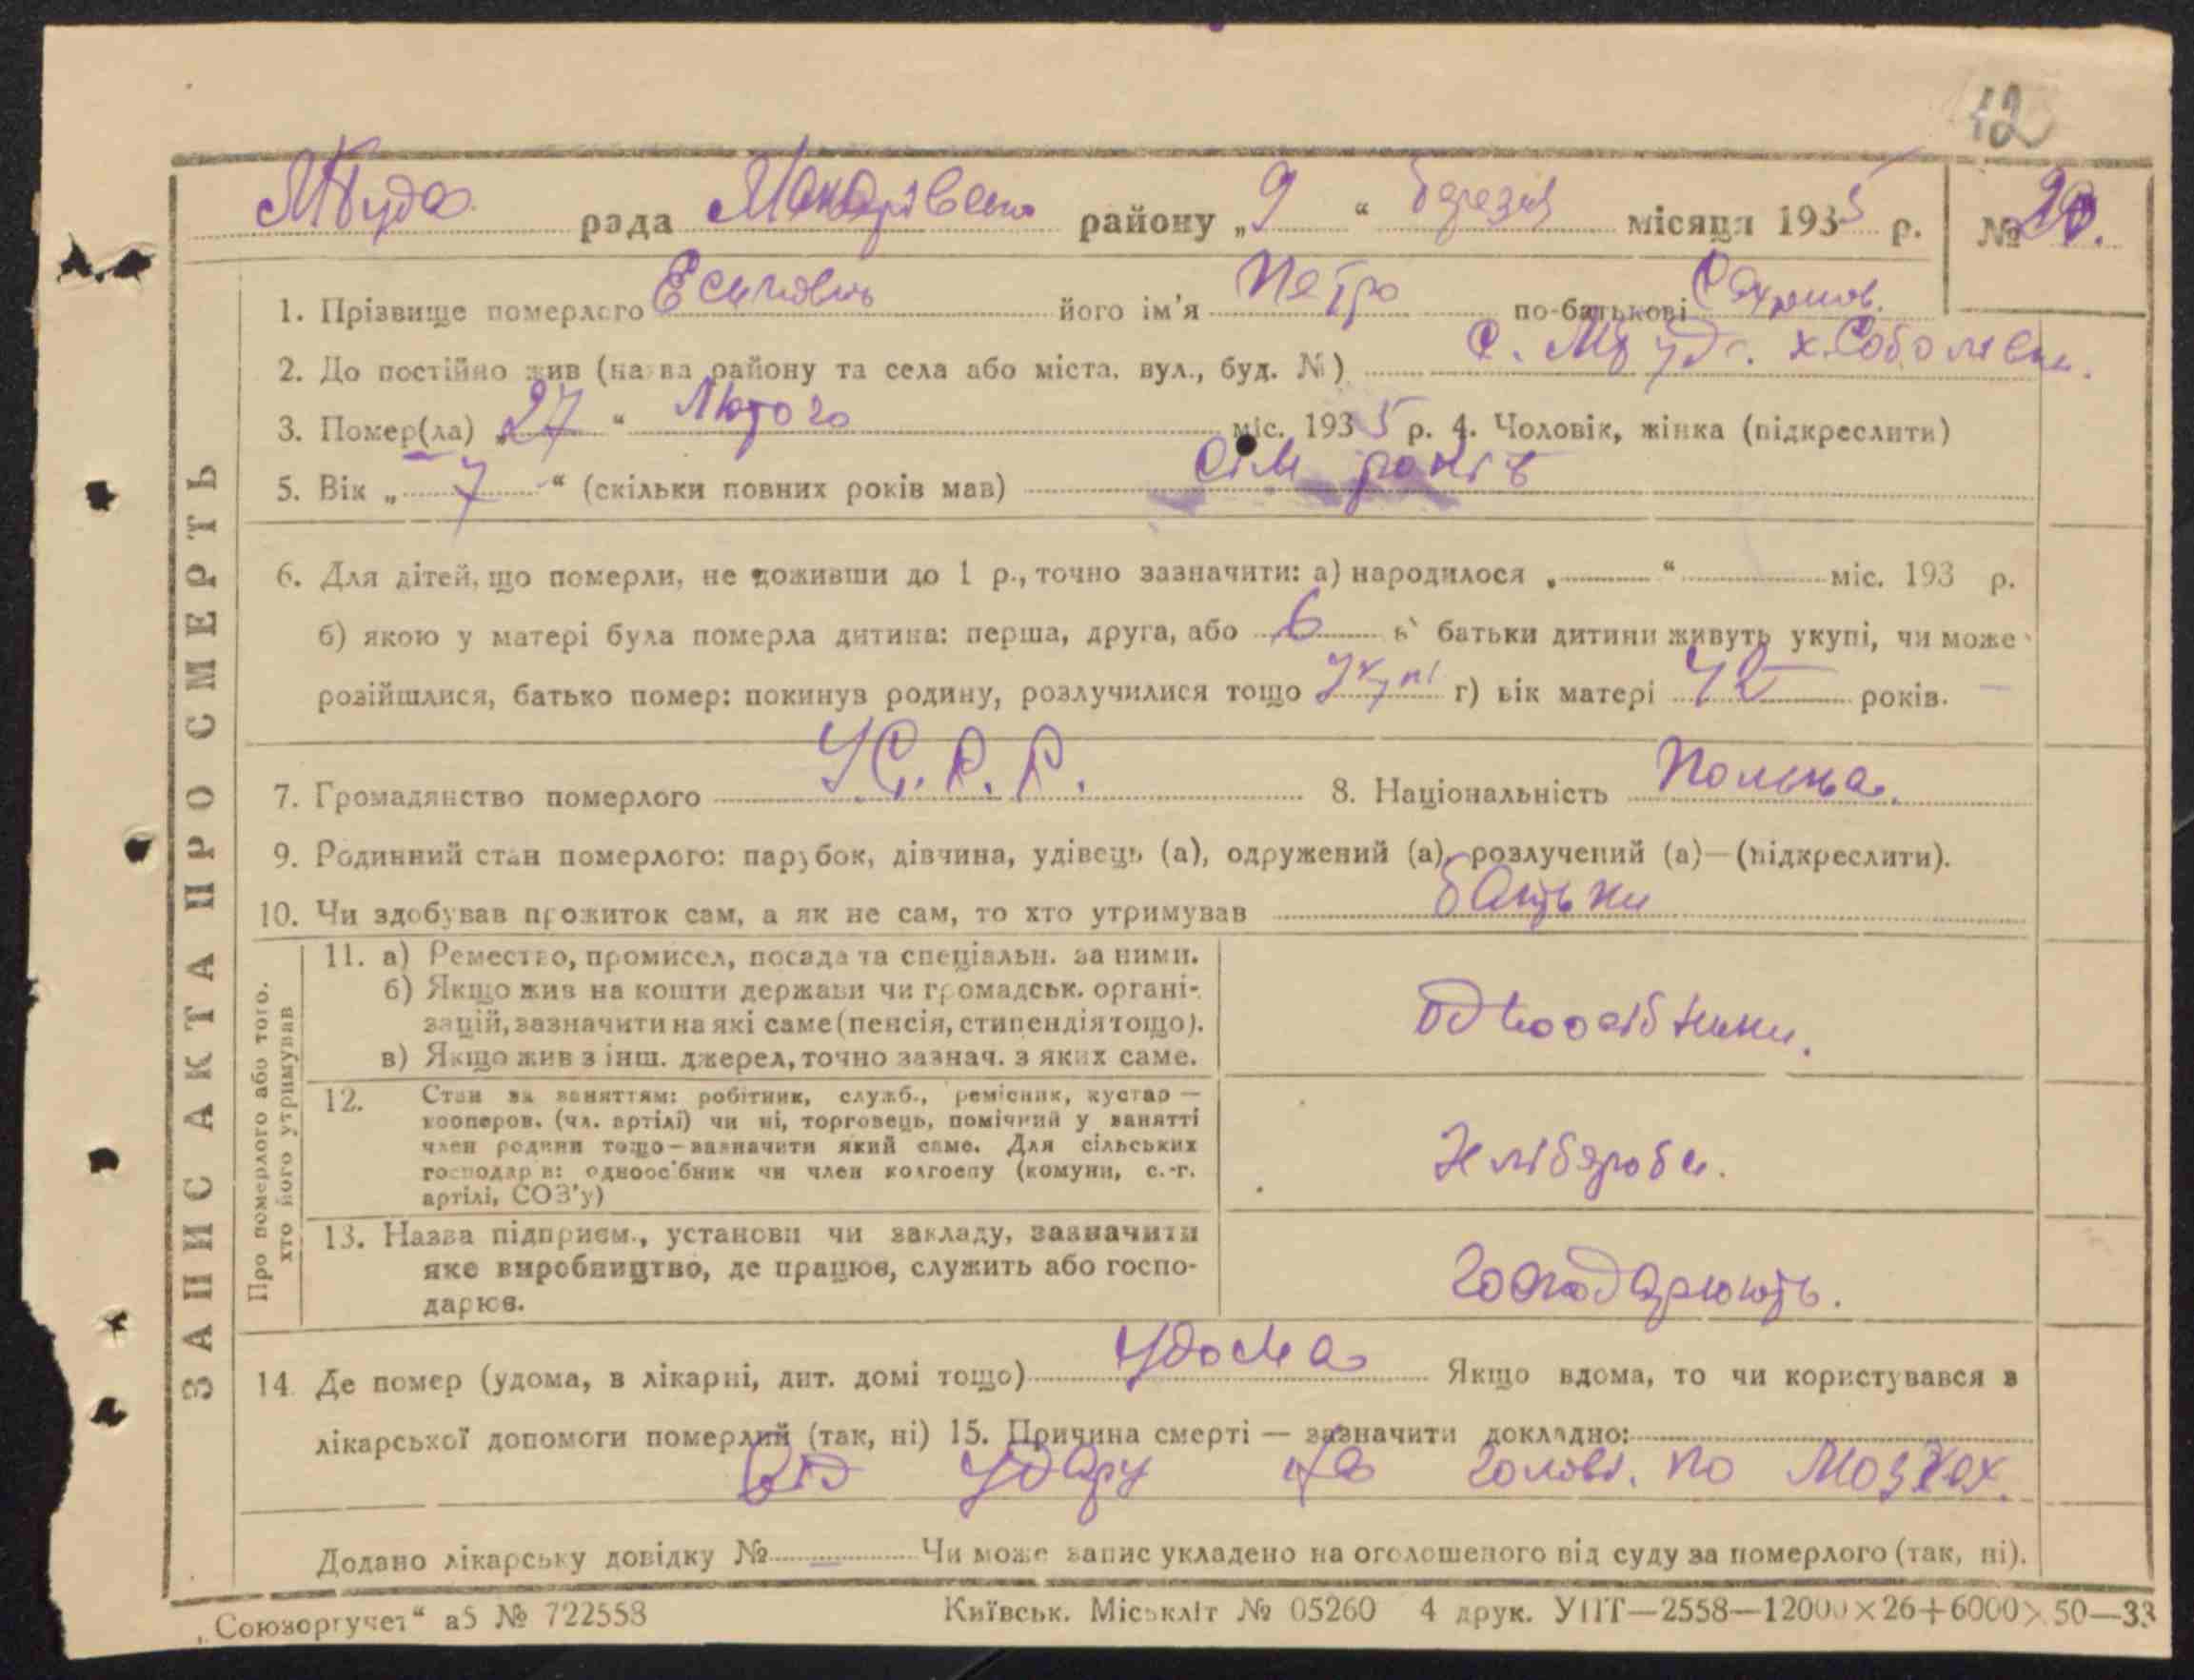 12
МБуда рада Макарівськ району „9“ березня місяця 1935 р. № 20.
1. Прізвище померлого Есипович його ім'я Петро по-батькові
2. Де постійно жив (назва району та села або міста, вул., буд. №) с. МБуда. х. Соболівка.
3. Помер(ла) „27“ Лютого міс. 1935 р. 4. Чоловік, жінка (підкреслити)
5. Вік „7“ (скільки повних років мав) сім років
6. Для дітей, що померли, не доживши до 1 р., точно зазначити: а) народилося „ “ міс. 193 р.
б) якою у матері була померла дитина: перша, друга, або 6 в) батьки дитини живуть укупі, чи може
розійшлися, батько помер: покинув родину, розлучилися тощо Укупі г) вік матері 42 років.
7. Громадянство померлого УС.Р.Р. 8. Національність Полька.
9. Родинний стан померлого: парубок, дівчина, удівець (а), одружений (а), розлучений (а)—(підкреслити).
10. Чи здобував прожиток сам, а як не сам, то хто утримував батьки
ЗАПИС АКТА ПРО СМЕРТЬ
Про померлого або того.
хто його утримував
11. а) Ремество, промисел, посада та спеціальн. за ними.
б) Якщо жив на кошти держави чи громадськ. органі-
зацій, зазначити на які саме (пенсія, стипендія тощо).
в) Якщо жив з інш. джерел, точно зазнач. з яких саме.
одноосібники.
12. Стан за заняттям: робітник, служб., ремісник, кустар —
кооперов. (чл. артілі) чи ні, торговець, помічний у занятті
член родини тощо—зазначити який саме. Для сільських
господарів: одноосібник чи член колгоспу (комуни, с.-г.
артілі, СОЗ'у)
Хлібороби.
13. Назва підприєм., установи чи закладу, зазначити
яке виробництво, де працює, служить або госпо-
дарює.
господарюють.
14. Де помер (удома, в лікарні, дит. домі тощо) Удома Якщо вдома, то чи користувався в
лікарської допомоги померлий (так, ні) 15. Причина смерті — зазначити докладно:
Від удару на голові. по мозках.
Додано лікарську довідку № — Чи може запис укладено на оголошеного від суду за померлого (так, ні).
„Союзоргучет“ а5 № 722558 Київськ. Міськліт № 05260 4 друк. УПТ—2558—12000×26+6000×50—33